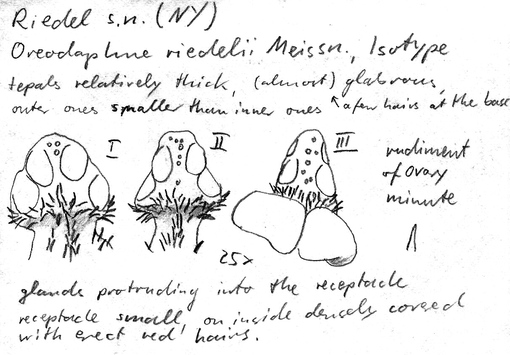 Riedel s.n. (NY)
Oreodaphne riedelii Meissn., Isotype
tepals relatively thick, (almost) glabrous,
outer ones smaller than inner ones ↖ a few hairs at the base
I II III
rudiment
of ovary
minute
25x
glands protruding into the receptacle
receptacle small, on inside densely covered
with erect 'red' hairs.